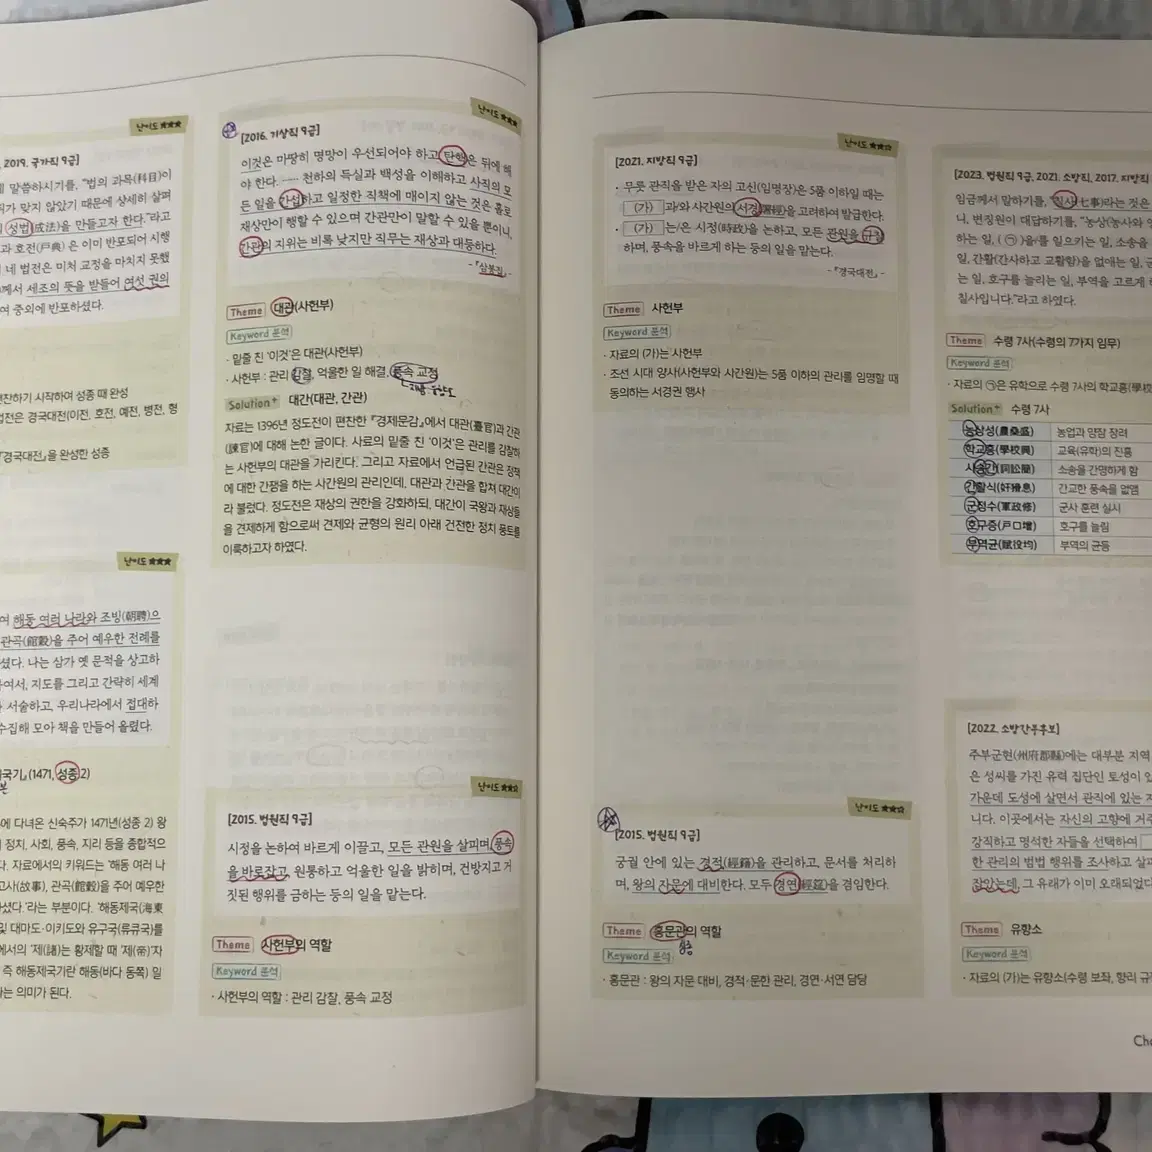 난이도 ★★★
2019. 국가직 9급]
말씀하시기를, "법의 과목(科目)이
가 맞지 않았기 때문에 상세히 살펴
성법(成法)을 만들고자 한다."라고
과 호전(戶典)은 이미 반포되어 시행
네 법전은 미처 교정을 마치지 못했
께서 세조의 뜻을 받들어 여섯 권의
여 중외에 반포하셨다.
찬하기 시작하여 성종 때 완성
법전은 경국대전(이전, 호전, 예전, 병전, 형
『경국대전』을 완성한 성종
난이도 ★★★
여 해동 여러 나라와 조빙(朝聘)으
관곡(館穀)을 주어 예우한 전례를
셨다. 나는 삼가 옛 문적을 상고하
여서, 지도를 그리고 간략히 세계
서술하고, 우리나라에서 접대하
수집해 모아 책을 만들어 올렸다.
국기』(1471, 성종 2)
본
에 다녀온 신숙주가 1471년(성종 2) 왕
정치, 사회, 풍속, 지리 등을 종합적으
다. 자료에서의 키워드는 '해동 여러 나
고사(故事), 관곡(館穀)을 주어 예우한
하셨다.'라는 부분이다. '해동제국(海東
및 대마도·이키도와 유구국(류큐국)를
에서의 '제(諸)는 황제할 때 '제(帝)'자
즉 해동제국기란 해동(바다 동쪽) 일
라는 의미가 된다.
난이도 ★★★
[2016. 기상직 9급]
이것은 마땅히 명망이 우선되어야 하고 탄핵은 뒤에 해
야 한다. …… 천하의 득실과 백성을 이해하고 사직의 모
든 일을 간섭하고 일정한 직책에 매이지 않는 것은 홀로
재상만이 행할 수 있으며 간관만이 말할 수 있을 뿐이니,
간관의 지위는 비록 낮지만 직무는 재상과 대등하다.
- 『삼봉집』 -
Theme 대관(사헌부)
Keyword 분석
· 밑줄 친 '이것'은 대관(사헌부)
· 사헌부 : 관리 감찰, 억울한 일 해결, 풍속 교정
Solution+ 대간(대관, 간관)
자료는 1396년 정도전이 편찬한 『경제문감』에서 대관(臺官)과 간관
(諫官)에 대해 논한 글이다. 사료의 밑줄 친 '이것'은 관리를 감찰하
는 사헌부의 대관을 가리킨다. 그리고 자료에서 언급된 간관은 정책
에 대한 간쟁을 하는 사간원의 관리인데, 대관과 간관을 합쳐 대간이
라 불렀다. 정도전은 재상의 권한을 강화하되, 대간이 국왕과 재상들
을 견제하게 함으로써 견제와 균형의 원리 아래 건전한 정치 풍토를
이룩하고자 하였다.
난이도 ★★☆
[2015. 법원직 9급]
시정을 논하여 바르게 이끌고, 모든 관원을 살피며, 풍속
을 바로잡고, 원통하고 억울한 일을 밝히며, 건방지고 거
짓된 행위를 금하는 등의 일을 맡는다.
Theme 사헌부의 역할
Keyword 분석
· 사헌부의 역할 : 관리 감찰, 풍속 교정
난이도 ★★☆
[2021. 지방직 9급]
· 무릇 관직을 받은 자의 고신(임명장)은 5품 이하일 때는
(가) 과/와 사간원의 서경(署經)을 고려하여 발급한다.
· (가) 는/은 시정(時政)을 논하고, 모든 관원을 규찰
하며, 풍속을 바르게 하는 등의 일을 맡는다.
- 『경국대전』 -
Theme 사헌부
Keyword 분석
· 자료의 (가)는 사헌부
· 조선 시대 양사(사헌부와 사간원)는 5품 이하의 관리를 임명할 때
동의하는 서경권 행사
난이도 ★★☆
[2015. 법원직 9급]
궁궐 안에 있는 경적(經籍)을 관리하고, 문서를 처리하
며, 왕의 자문에 대비한다. 모두 경연(經筵)을 겸임한다.
Theme 홍문관의 역할
Keyword 분석
· 홍문관 : 왕의 자문 대비, 경적·문한 관리, 경연·서연 담당
[2023. 법원직 9급, 2021. 소방직, 2017. 지방직
임금께서 말하기를, "칠사(七事)라는 것은
니, 변징원이 대답하기를, "농상(농사와 양
하는 일, ( ㉠ )을/를 일으키는 일, 소송을
일, 간활(간사하고 교활함)을 없애는 일,
는 일, 호구를 늘리는 일, 부역을 고르게
칠사입니다."라고 하였다.
Theme 수령 7사(수령의 7가지 임무)
Keyword 분석
· 자료의 ㉠은 유학으로 수령 7사의 학교흥(學校
Solution+ 수령 7사
농상성(農桑盛) 농업과 양잠 장려
학교흥(學校興) 교육(유학)의 진흥
사송간(詞訟簡) 소송을 간명하게 함
간활식(奸猾息) 간교한 풍속을 없앰
군정수(軍政修) 군사 훈련 실시
호구증(戶口增) 호구를 늘림
부역균(賦役均) 부역의 균등
[2022. 소방간부후보]
주부군현(州府郡縣)에는 대부분 지역
은 성씨를 가진 유력 집단인 토성이 있
가운데 도성에 살면서 관직에 있는 자
니다. 이곳에서는 자신의 고향에 거주
강직하고 명석한 자들을 선택하여
한 관리의 범법 행위를 조사하고 살피
잡았는데, 그 유래가 이미 오래되었다
Theme 유향소
Keyword 분석
· 자료의 (가)는 유향소(수령 보좌, 향리 규
Cha